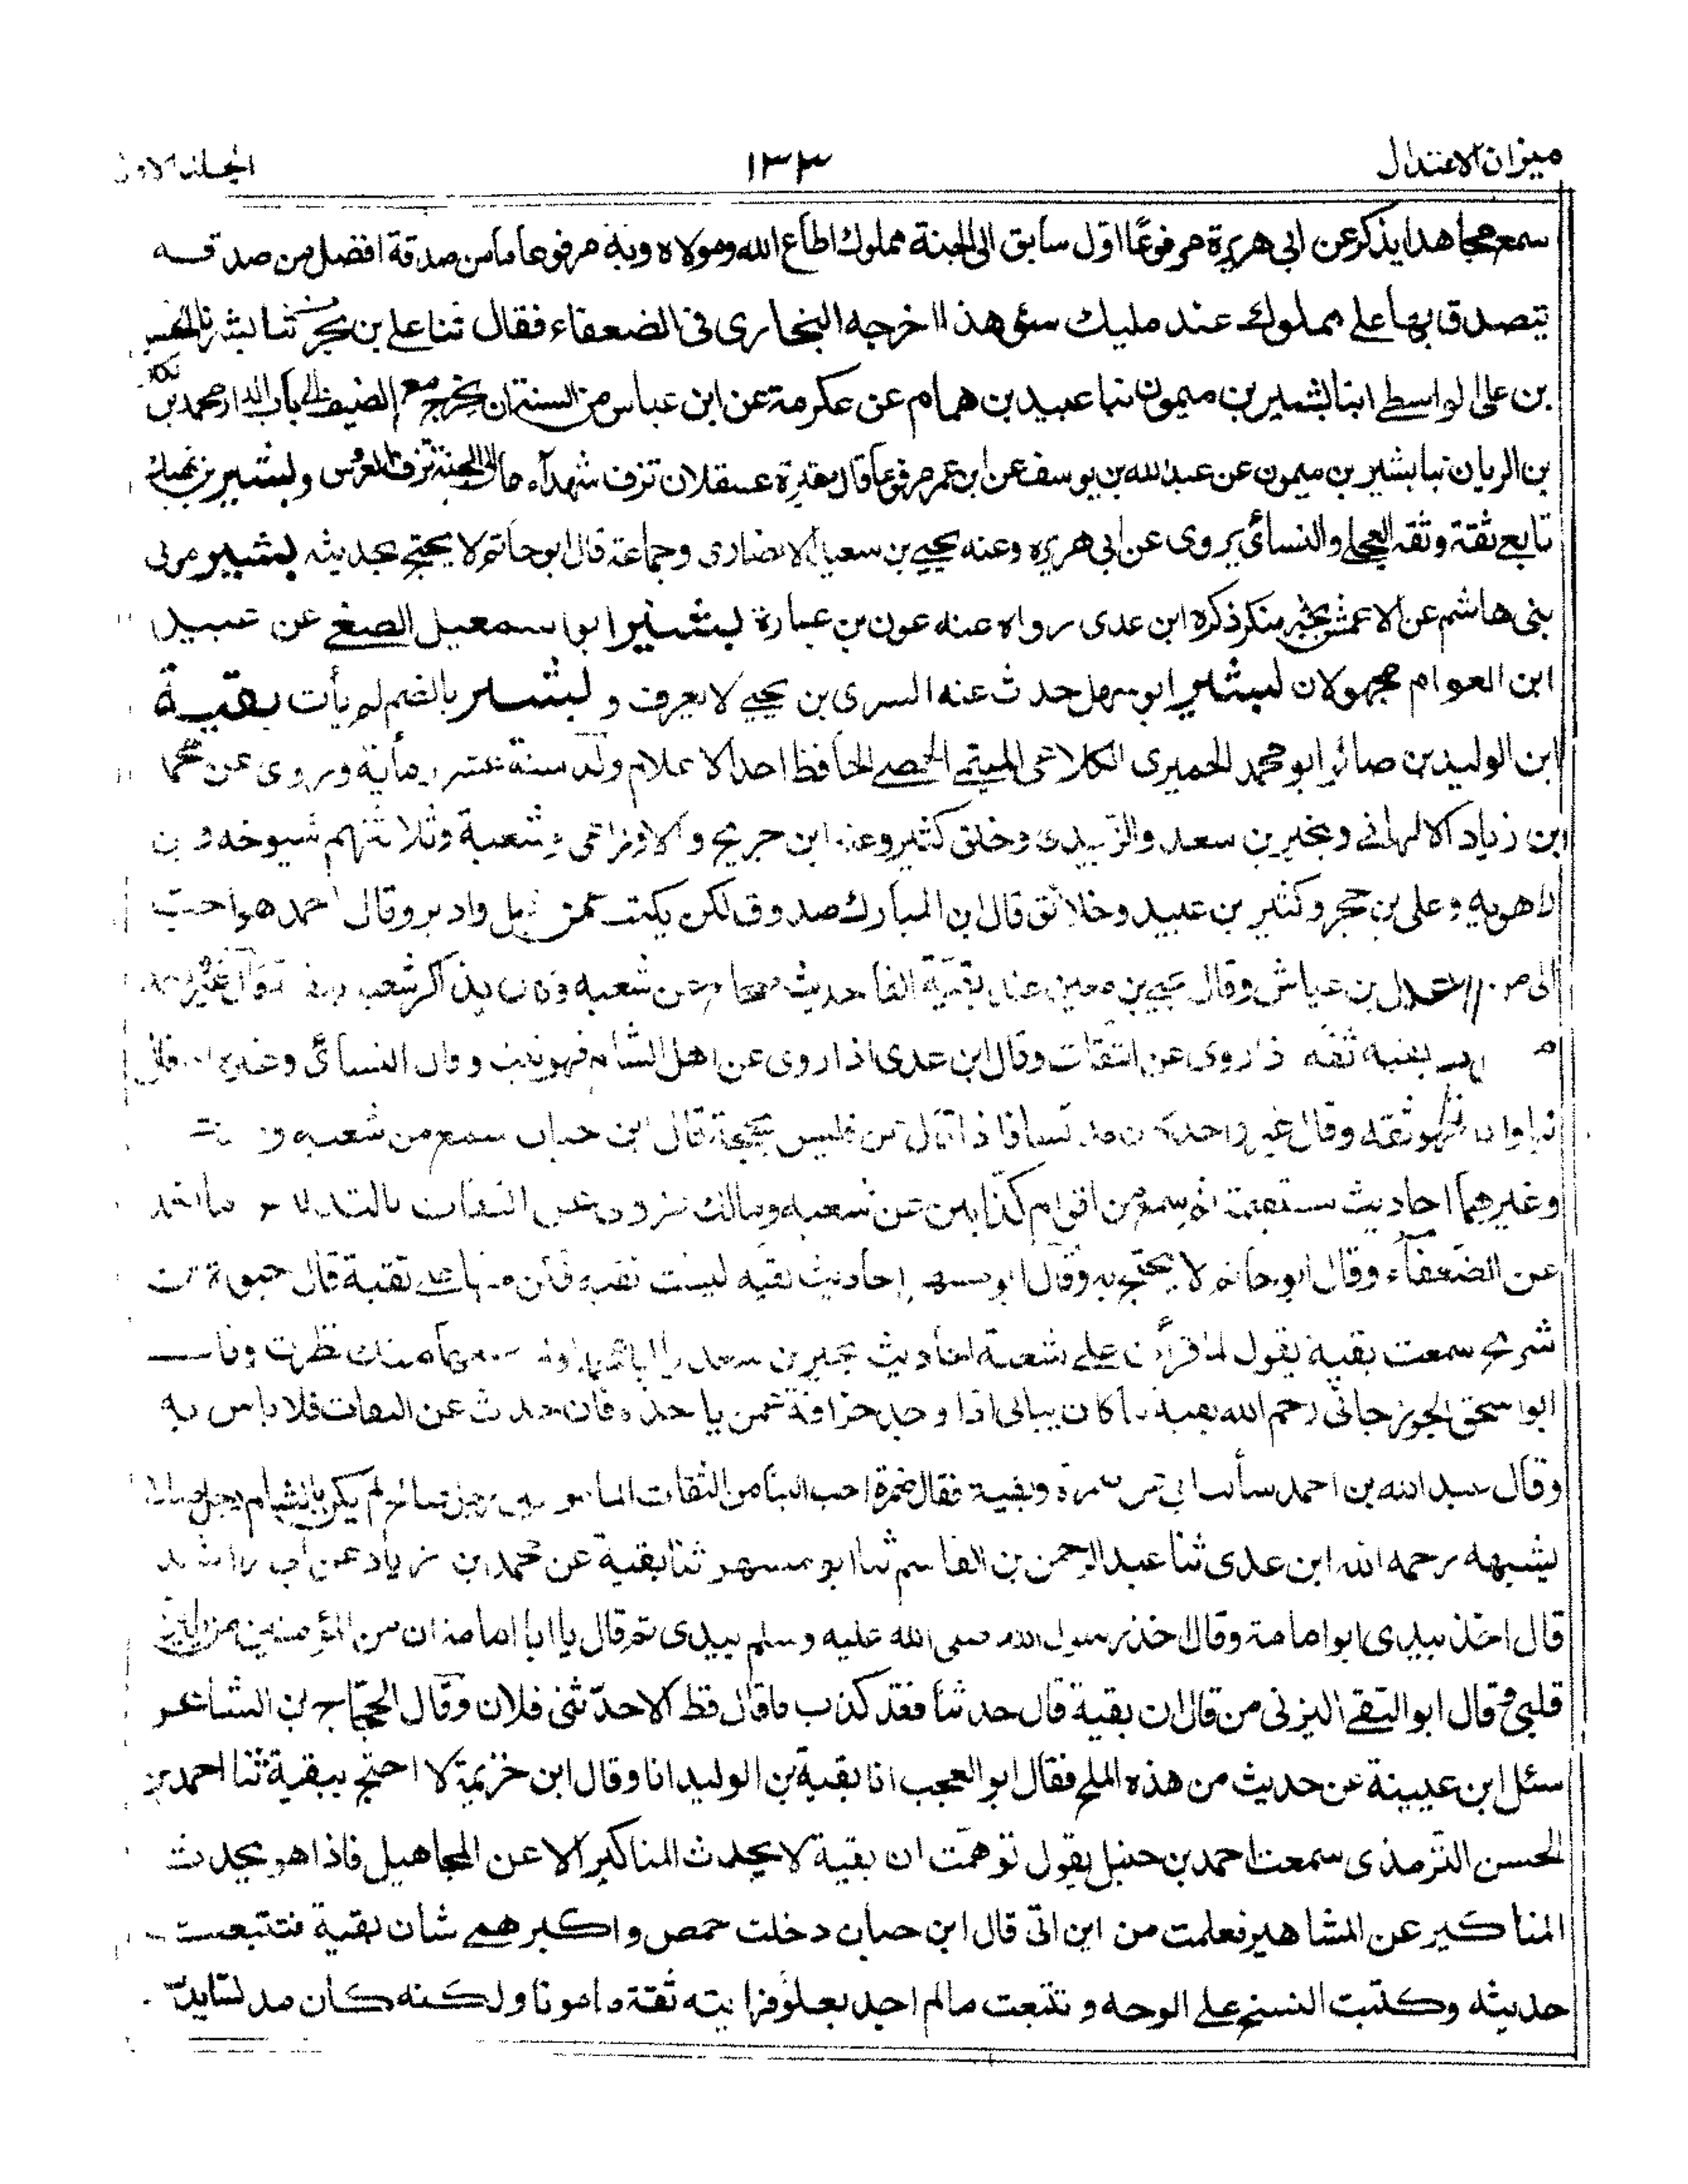 ميزان الاعتدال ١٣٣ الجلد الاول
سمع مجاهدا يذكر عن ابي هريرة مرفوعًا اوّل سابق الى الجنة مملوك اطاع الله ومولاه وبه مرفوعا ما من صدقة افضل من صدقه
تيصدق بها على مملوك عند مليك سئ هذا اخرجه البخارى فى الضعفاء فقال ثنا على بن حجر ثنا بشر
بن على الواسطے ابنا بشير بن ميمون ثنا عبيد بن همام عن عكرمة عن ابن عباس من السنة ان يخرج مع الضيف الى باب الدار محمد بن
بن الريان ثنا بشير بن ميمون عن عبد الله بن يوسف عن ابن عمر مرفوعًا قال مقبرة عسقلان تزف شهدآءها الى الجنة كما تزف العروس و بشير بن نهيك
تابع ثقة وثقه العجلے والنسائي يروى عن ابى هريره وعنه يحيے بن سعيد الانصارى وجماعة قال ابو حاتم لا يحتج بحديثه بشير مولى
بنى هاشم عن الاعمش بخبر منكر ذكره ابن عدى رواه عنه عون بن عمارة بشير ابو اسمعيل الصنعے عن عبيد
ابن العوام مجهولان بشير ابو سهل حدث عنه السرى بن يحيے لا يعرف و بشير بالضم لم يأت بقية
ابن الوليد بن صائد ابو محمد الحميرى الكلاعى الميتمے الحمصے الحافظ احد الاعلام ولد سنة عشر ومأية وروى عن محمد
ابن زياد الالهانے وبحير بن سعد والزّبيدى وخلق كثير وعنه ابن جريج والاوزاعى وشعبة وثلاثتهم شيوخه و بن
راهويه وعلى بن حجر وكثير بن عبيد وخلائق قال ابن المبارك صدوق لكن يكتب عمن اقبل وادبر وقال احمد هو احب
الى من اسمعيل بن عياش وقال يحيے بن معين عند بقية الفا حديث صحاح عن شعبه وكان يذاكر شعبه
بقيه ثقه اذا روى عن الثقات وقال ابن عدى اذا روى عن اهل الشام فهو ثبت وقال النسائى وغيره اذا قال
ثنا وانا فهو ثقه وقال غير واحد كان مدلسا فاذا قال عن فليس بحجة قال ابن حبان سمع من شعبه و
وغيرهما احاديث مستقيمة ثم سمع من اقوام كذابين عن شعبه ومالك فروى عن الثقات بالتدليس ما اخذ
عن الضعفآء وقال ابو حاتم لا يحتج به وقال ابو مسهر احاديث بقيه ليست نقيه فكن منها على تقية قال حيوة بن
شريح سمعت بقية يقول لما قرأت على شعبة احاديث بحير بن سعد
ابو اسحق الجوزجانى رحم الله بقية ما كان يبالى اذا وجد خرافة عمن ياخذه فان حدث عن الثقات فلا باس به
وقال عبد الله بن احمد سألت ابي عن ضمرة وبقية فقال ضمرة احب الينا من الثقات المأمونين رجل صالح لم يكن بالشام رجل
يشبهه رحمه الله ابن عدى ثنا عبد الرحمن بن القاسم ثنا ابو مسهر ثنا بقية عن محمد بن زياد عن ابى راشد
قال اخذ بيدى ابو امامة وقال اخذ رسول الله صلى الله عليه وسلم بيدى ثم قال يا ابا امامة ان من المؤمنين من يلين
قلبى قال ابو التقے اليزنى من قال ان بقية قال حدثنا فقد كذب ما قال قط الا حدّثنى فلان وقال الحجّاج بن الشاعر
سئل ابن عيينة عن حديث من هذه الملح فقال ابو العجب انا بقية بن الوليد انا وقال ابن خزيمة لا احتج ببقية ثنا احمد بن
الحسن الترمذى سمعت احمد بن حنبل يقول توهمت ان بقية لا يحدث المناكير الا عن المجاهيل فاذا هو يحدث
المناكير عن المشاهير فعلمت من اين اتى قال ابن حبان دخلت حمص واكبر همے شان بقية فتتبعت
حديثه وكتبت النسخ على الوجه و تتبعت مالم اجد بعلو فرايته ثقة مامونا ولكنه كان مدلسا